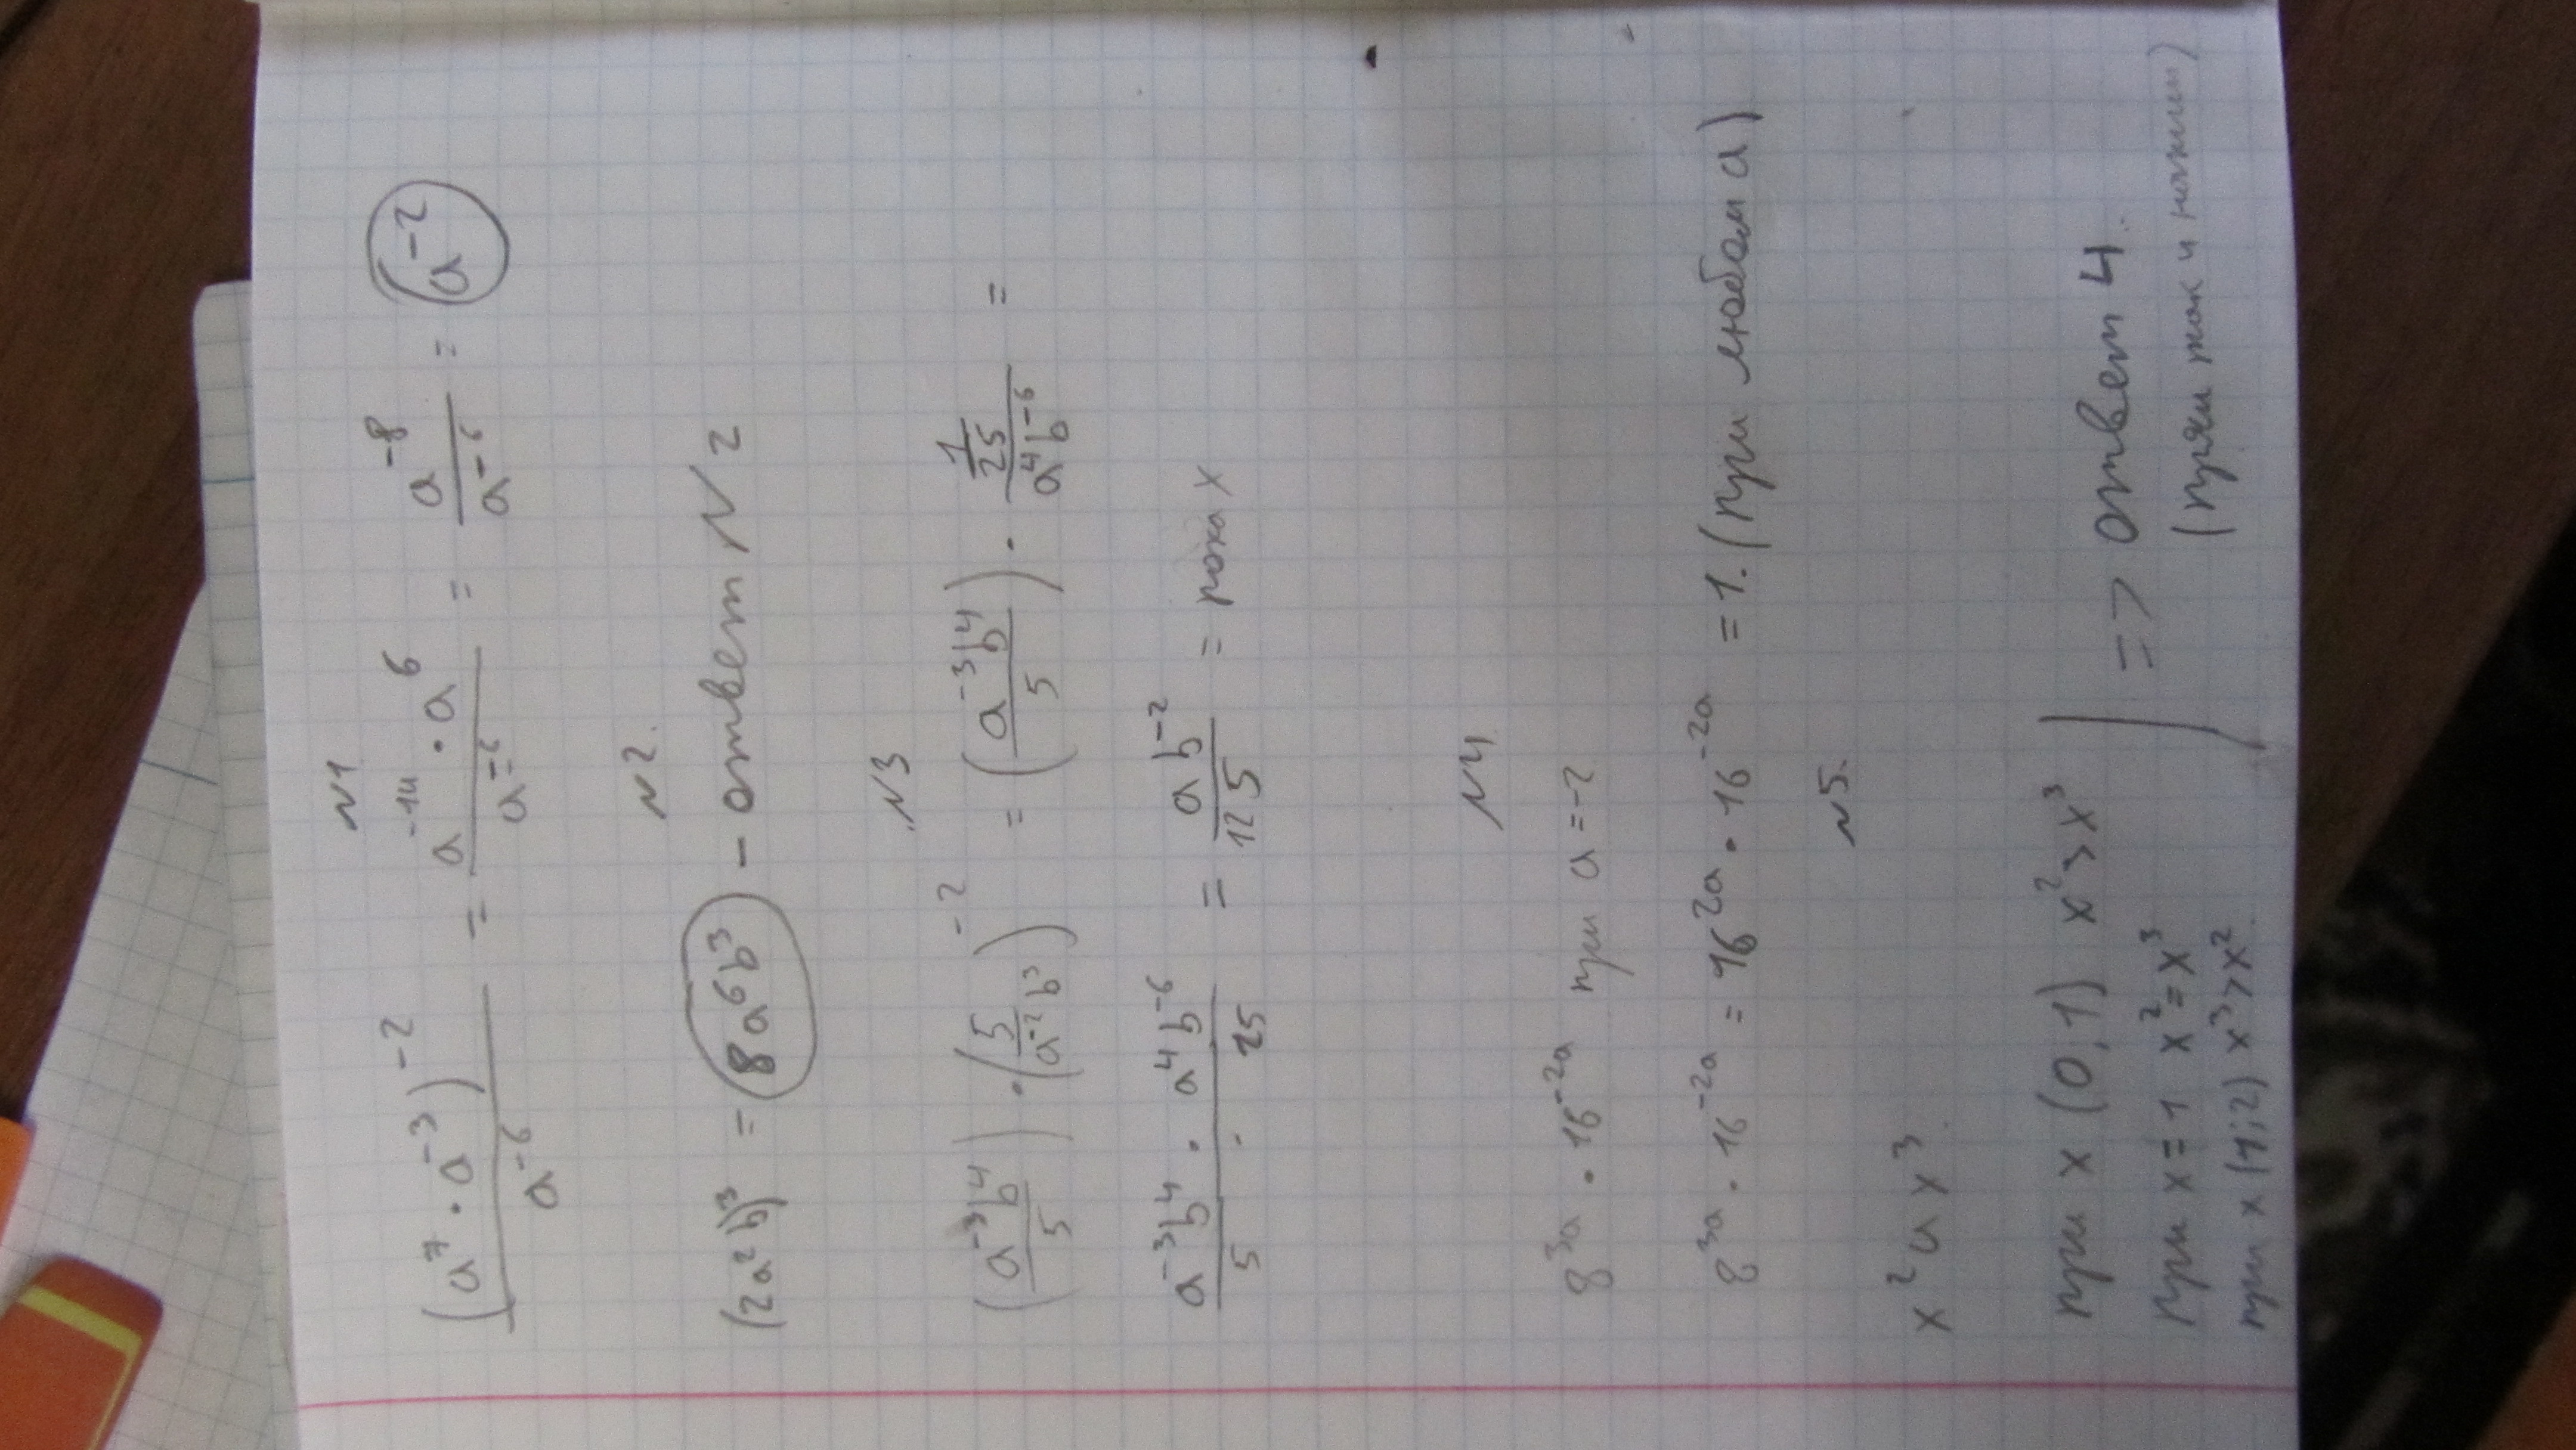 N1
(a⁷ · a⁻³)⁻² / a⁻⁶ = a⁻¹⁴ · a⁶ / a⁻⁶ = a⁻⁸ / a⁻⁶ = a⁻²
N2.
(2a²b)³ = 8a⁶b³ – ответ N2
N3
(a⁻³b⁴ / 5) · (5 / a⁻²b³)⁻² = (a⁻³b⁴ / 5) · (1/25) / a⁴b⁻⁶ =
a⁻³b⁴ · a⁴b⁻⁶ / 5 · 25 = ab⁻² / 125 =
N4
8³ᵃ · 16⁻²ᵃ при a = -2
8³ᵃ · 16⁻²ᵃ = 16²ᵃ · 16⁻²ᵃ = 1. (при любом a)
N5.
x² и x³.
при x (0;1) x² > x³
при x = 1 x² = x³
=> ответ 4.
при x (1;2) x³ > x².